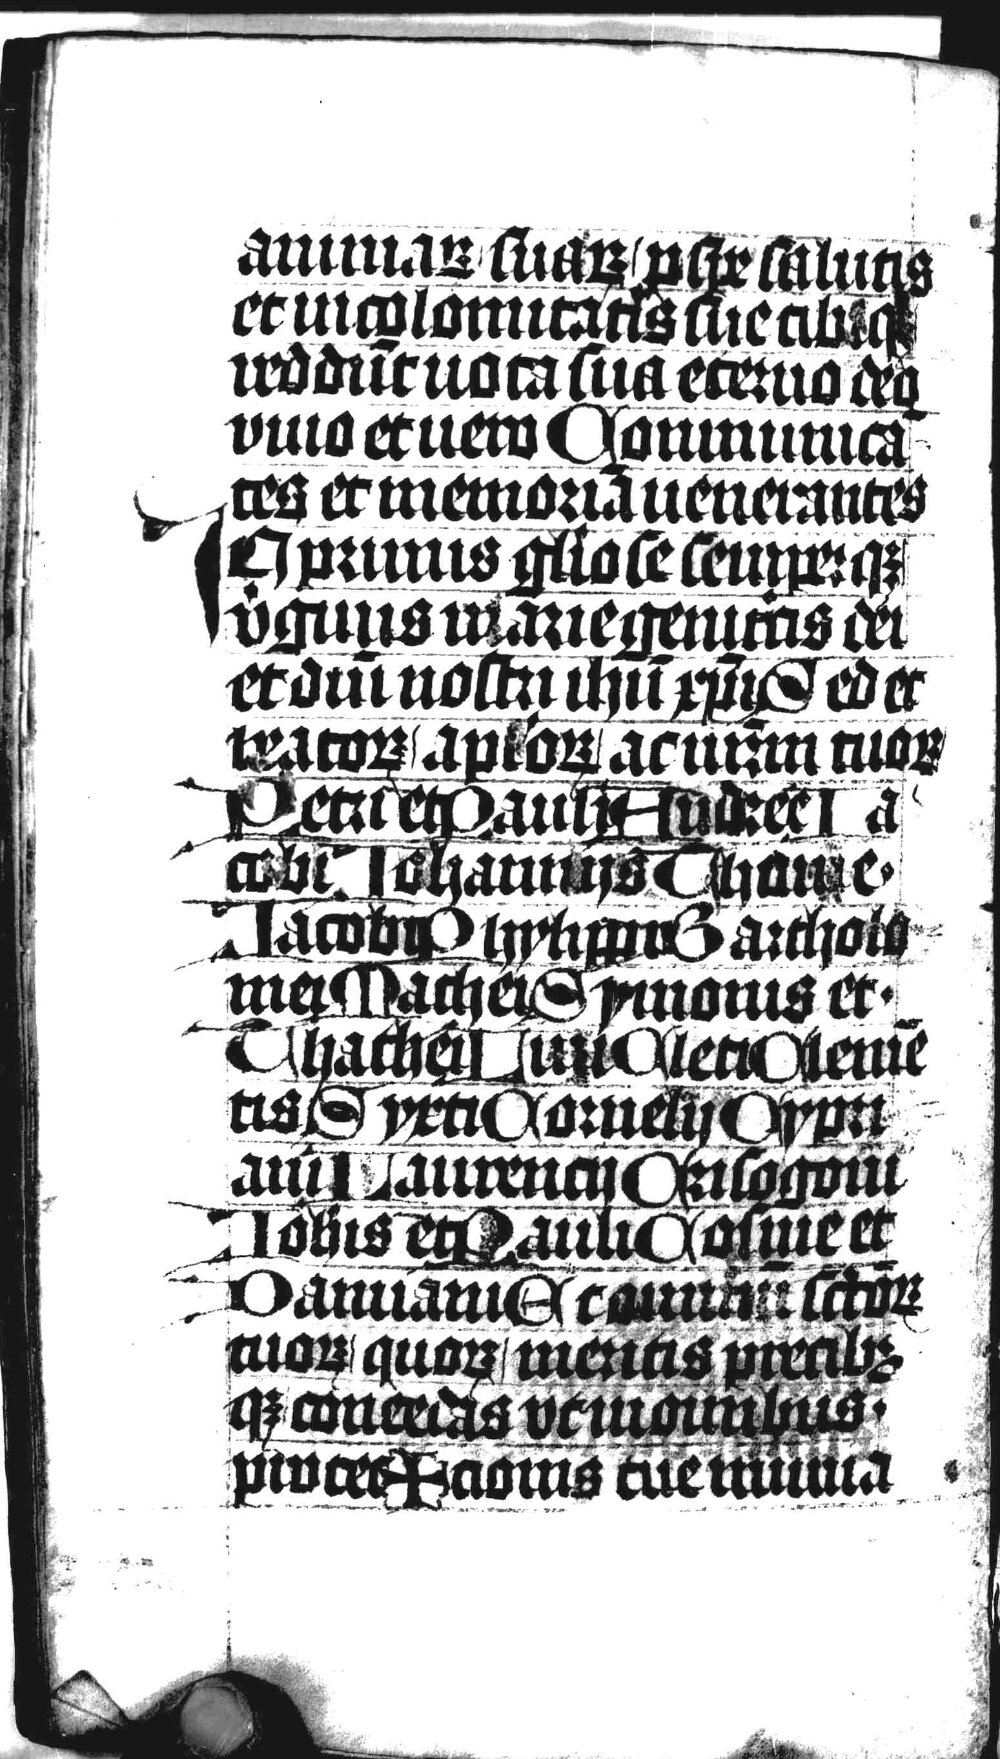 animaꝝ suaꝝ p spe salutis
et incolomitatis sue tibiq
reddūt uota sua eterno deo
viuo et uero Communica
tes et memoriā uenerantes
In primis gl'iose semper qꝫ
v'ginis marie genitr'cis dei
et dn̄i nostri ihū xp̄i Sed et
beatoꝝ ap'loꝝ ac mr̄m tuoꝝ
Petri et Pauli Andree Ia
cobi Iohannis Thome·
Iacobi Phylippi Bartholo
mei Mathei Symonis et·
Thathei Lini Cleti Clemē
tis Syxti Cornelij Cypri
ani Laurencij Crisogoni
Ioh'is et Pauli Cosme et
Damiani Et omniū sctōꝝ
tuoꝝ quoꝝ meritis precibꝫ
qꝫ concedas vt in omnibus·
protec✠cionis tue muniā